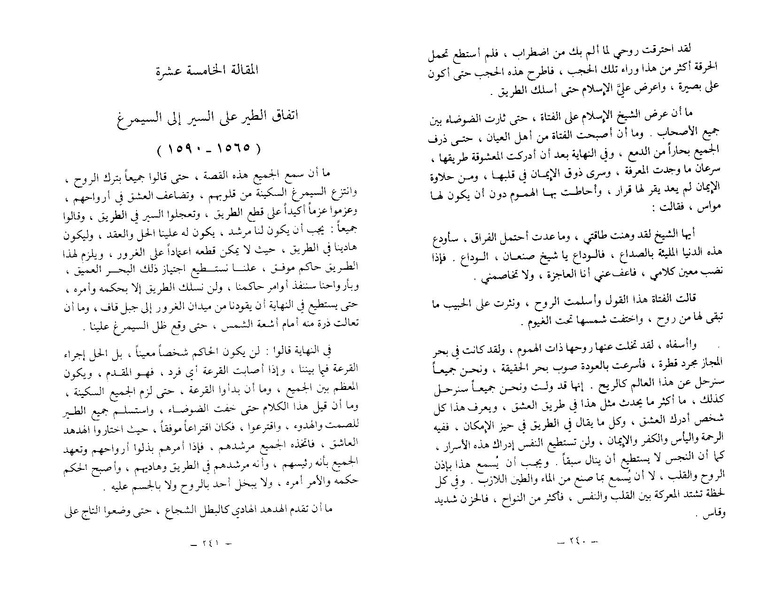 لقد احترقت روحي لما ألم بك من اضطراب ، فلم أستطع تحمل
الحرقة أكثر من هذا وراء تلك الحجب ، فاطرح هذه الحجب حتى أكون
على بصيرة ، واعرض عليَّ الإسلام حتى أسلك الطريق .
ما أن عرض الشيخ الإسلام على الفتاة ، حتى ثارت الضوضاء بين
جميع الأصحاب . وما أن أصبحت الفتاة من أهل العيان ، حتى ذرف
الجميع بحاراً من الدمع ، وفي النهاية بعد أن أدركت المعشوقة طريقها ،
سرعان ما وجدت المعرفة ، وسرى ذوق الإيمان في قلبها ، ومن حلاوة
الإيمان لم يعد يقر لها قرار ، وأحاطت بها الهموم دون أن يكون لها
مواس ، فقالت :
أيها الشيخ لقد وهنت طاقتي ، وما عدت أحتمل الفراق ، سأودع
هذه الدنيا المليئة بالصداع ، فالوداع يا شيخ صنعان ، الوداع . فإذا
نضب معين كلامي ، فاعف عني أنا العاجزة ، ولا تخاصمني .
قالت الفتاة هذا القول وأسلمت الروح ، ونثرت على الحبيب ما
تبقى لها من روح ، واختفت شمسها تحت الغيوم .
وا أسفاه ، لقد تخلت عنها روحها ذات الهموم ، ولقد كانت في بحر
المجاز مجرد قطرة ، فأسرعت بالعودة صوب بحر الحقيقة ، ونحن جميعاً
سنرحل عن هذا العالم كالريح . إنها قد ولت ونحن جميعاً سنرحل
كذلك ، ما أكثر ما يحدث مثل هذا في طريق العشق ، ويعرف هذا كل
شخص أدرك العشق ، وكل ما يقال في الطريق في حيز الإمكان ، ففيه
الرحمة واليأس والكفر والإيمان ، ولن تستطيع النفس إدراك هذه الأسرار ،
كما أن النجس لا يستطيع أن ينال سبقاً . ويجب أن يُسمع هذا بإذن
الروح والقلب ، لا أن يُسمع بما صنع من الماء والطين اللازب . وفي كل
لحظة تشتد المعركة بين القلب والنفس ، فأكثر من النواح ، فالحزن شديد
وقاس .
– ٢٤٠ –
المقالة الخامسة عشرة
اتفاق الطير على السير إلى السيمرغ
( ١٥٦٥ – ١٥٩٠ )
ما أن سمع الجميع هذه القصة ، حتى قالوا جميعاً بترك الروح ،
وانتزع السيمرغ السكينة من قلوبهم ، وتضاعف العشق في أرواحهم ،
وعزموا عزماً أكيداً على قطع الطريق ، وتعجلوا السير في الطريق ، وقالوا
جميعاً : يجب أن يكون لنا مرشد ، يكون له علينا الحل والعقد ، وليكون
هادينا في الطريق ، حيث لا يمكن قطعه اعتماداً على الغرور ، ويلزم لهذا
الطريق حاكم موفق ، علنا نستطيع اجتياز ذلك البحر العميق ،
وبأرواحنا سننفذ أوامر حاكمنا ، ولن نسلك الطريق إلا بحكمه وأمره ،
حتى يستطيع في النهاية أن يقودنا من ميدان الغرور إلى جبل قاف ، وما أن
تعالت ذرة منه أمام أشعة الشمس ، حتى وقع ظل السيمرغ علينا .
في النهاية قالوا : لن يكون الحاكم شخصاً معيناً ، بل الحل إجراء
القرعة فيما بيننا ، وإذا أصابت القرعة أي فرد ، فهو المقدم ، ويكون
المعظم بين الجميع ، وما أن بدأوا القرعة ، حتى لزم الجميع السكينة ،
وما أن قيل هذا الكلام حتى خفت الضوضاء ، واستسلم جميع الطير
للصمت والهدوء ، واقترعوا ، فكان اقتراعاً موفقاً ، حيث اختاروا الهدهد
العاشق ، فاتخذه الجميع مرشدهم ، فإذا أمرهم بذلوا أرواحهم وتعهد
الجميع بأنه رئيسهم ، وأنه مرشدهم في الطريق وهاديهم ، وأصبح الحكم
حكمه والأمر أمره ، ولا يبخل أحد بالروح ولا بالجسم عليه .
ما أن تقدم الهدهد الهادي كالبطل الشجاع ، حتى وضعوا التاج على
– ٢٤١ –